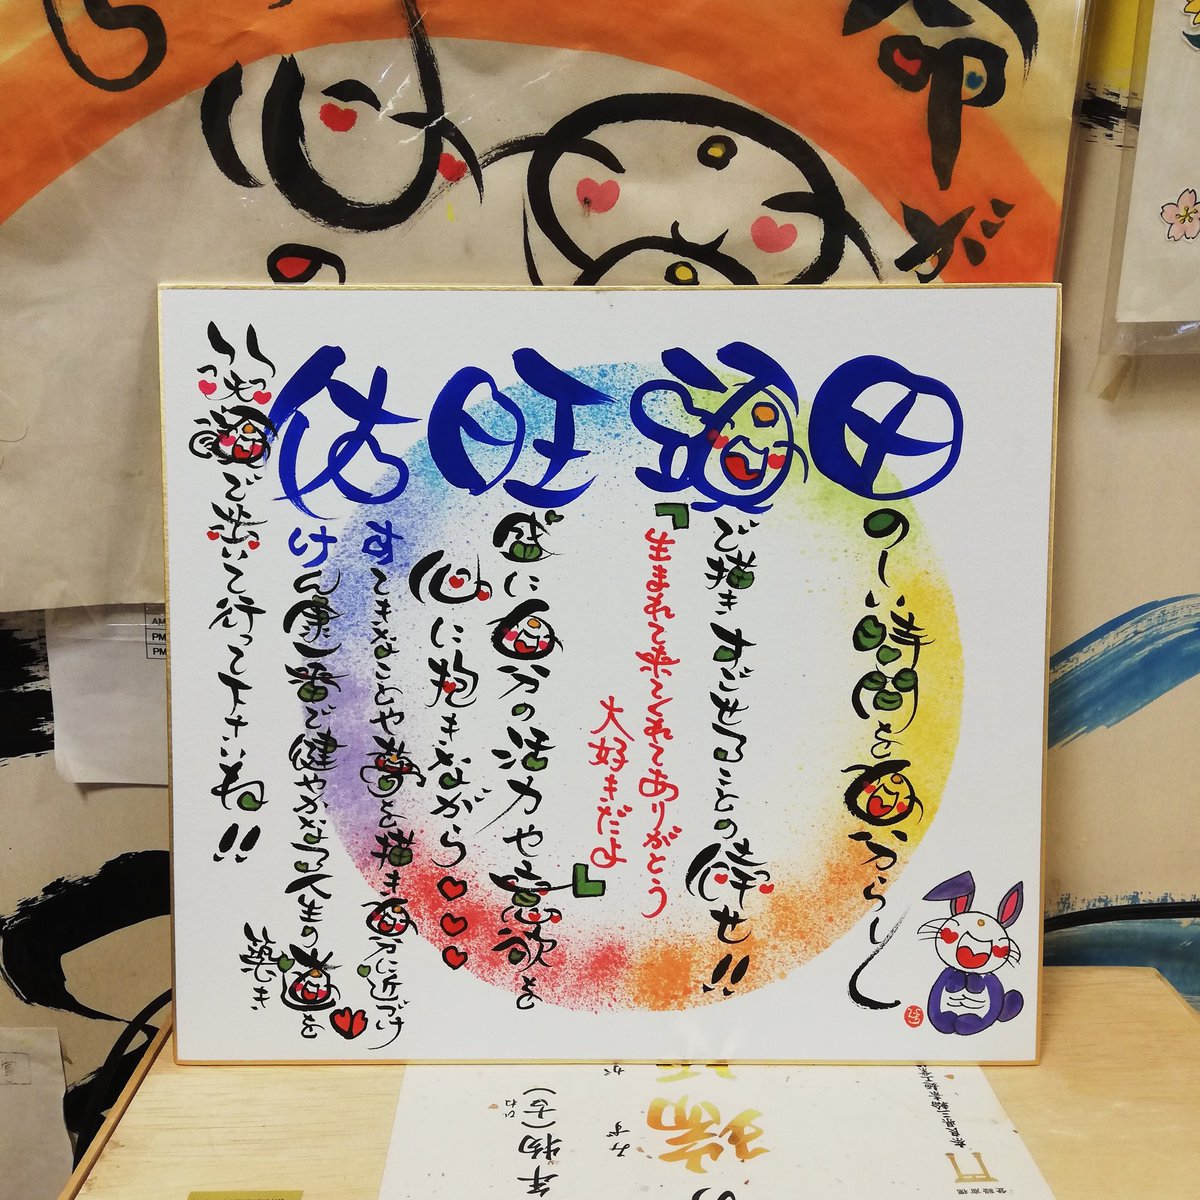 命が
心の
田のしい時間を自分らしく
で描きすごせることの倖せ!!
『生まれて来てくれてありがとう
大好きだよ』
旺盛に自分の活力や意欲を
心に抱きながら
佑
すてきなことや夢を描き自分に近づけ
けん康一番で健やかな人生の道を
築き
笑顔で歩いて行って下さいね!!
AM
PM
PM
瑞
みず
が
年物(古)
ひね